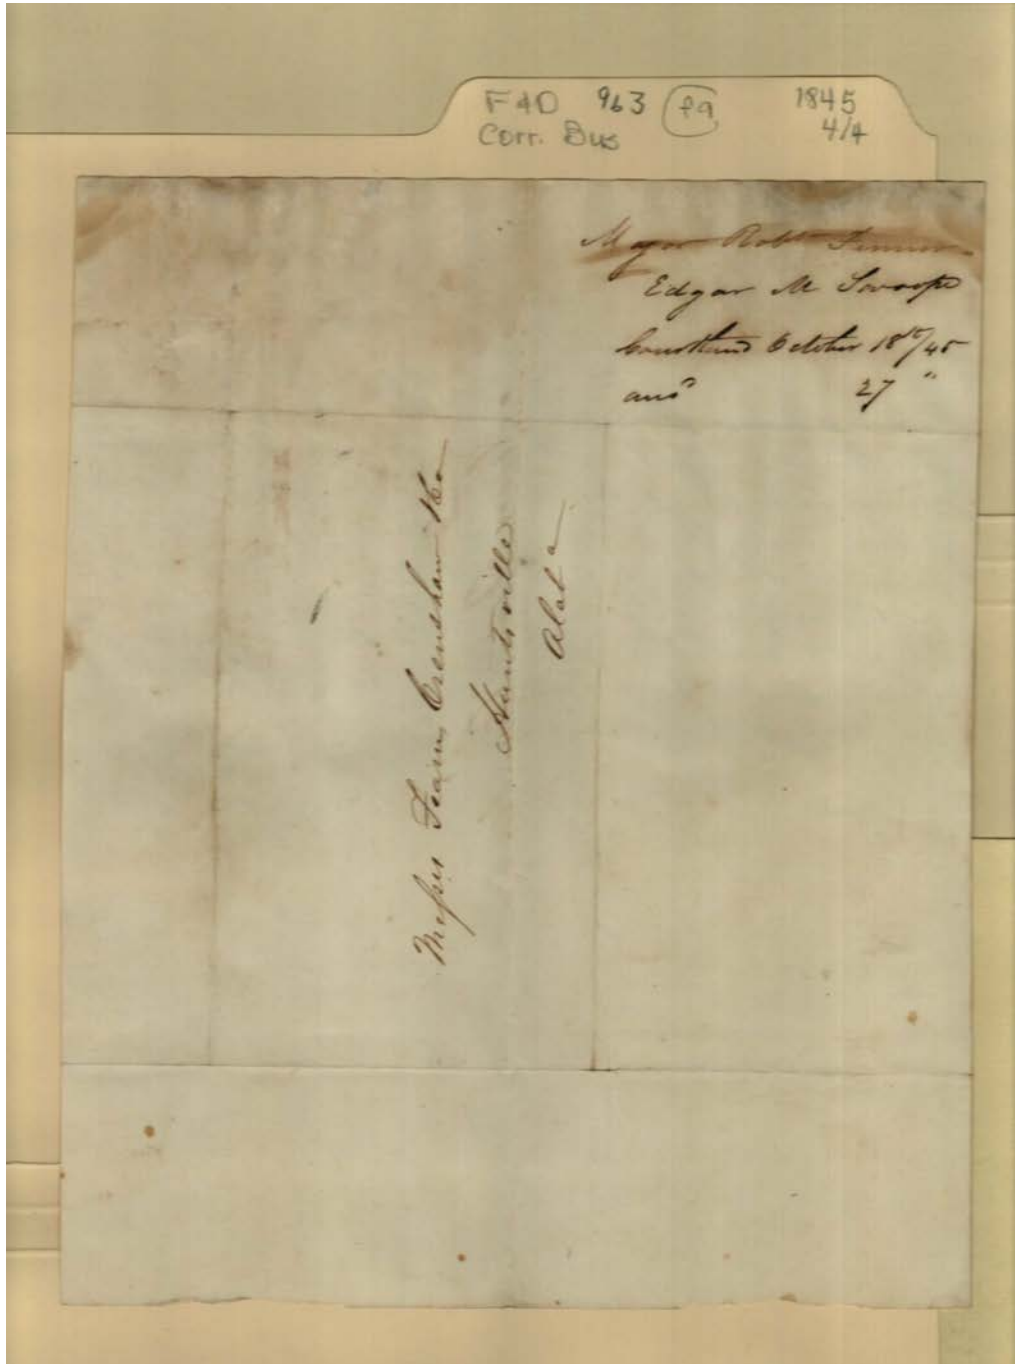 F4D 963 f9 1845
Corr. Bus 4/4
Major Robt Fenner
Edgar M Swoope
Courtland October 18th/45
ansd 27 "
Messrs Fearn, Crenshaw & Co
Huntsville
Alaba